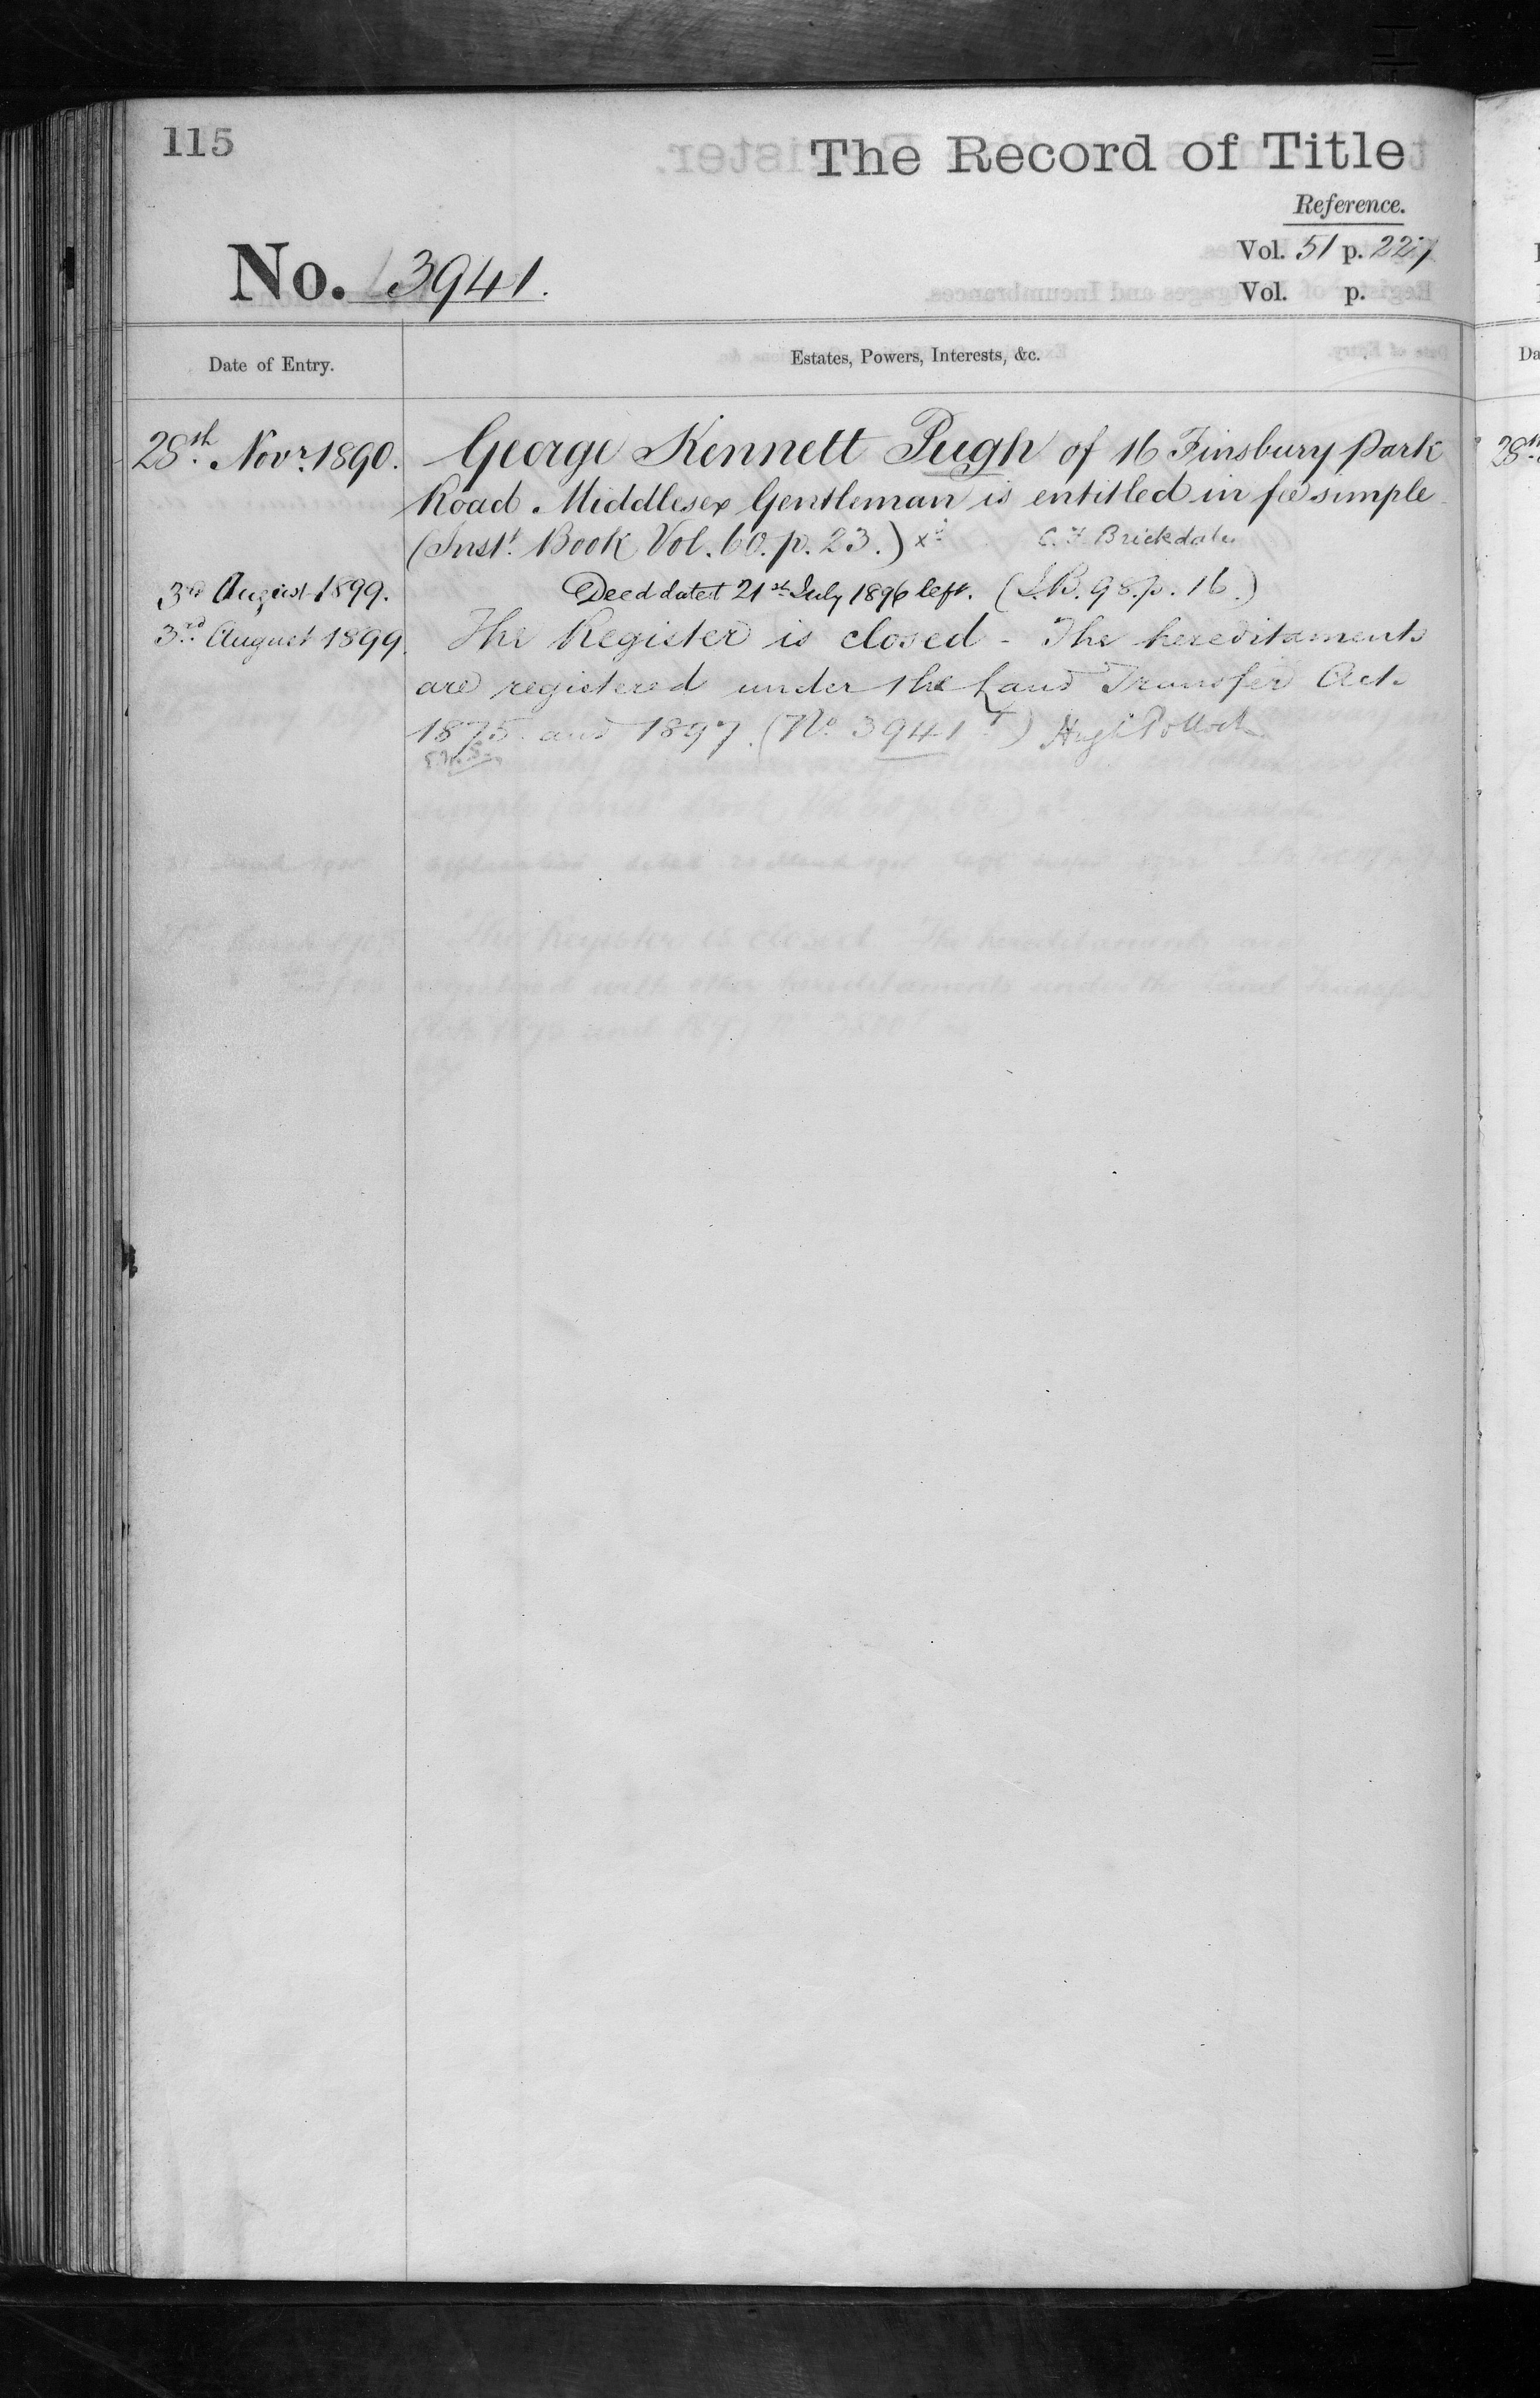 115
The Record of Title
Reference.
Vol. 51 p. 227
Vol. p.
No. 3941.
Date of Entry.
Estates, Powers, Interests, &c.
28th. Novr. 1890. George Kennett Pugh of 16 Finsbury Park
Road Middlesex Gentleman is entitled in fee simple
(Inst. Book Vol. 60. p. 23.) C. F. Brickdale
3rd August 1899. Deed dated 21st July 1896 left. (I.B. 98. p. 16.)
3rd August 1899 The Register is closed - The hereditaments
are registered under the Land Transfer Acts
1875 and 1897. (No. 3941) Hugh Pollock